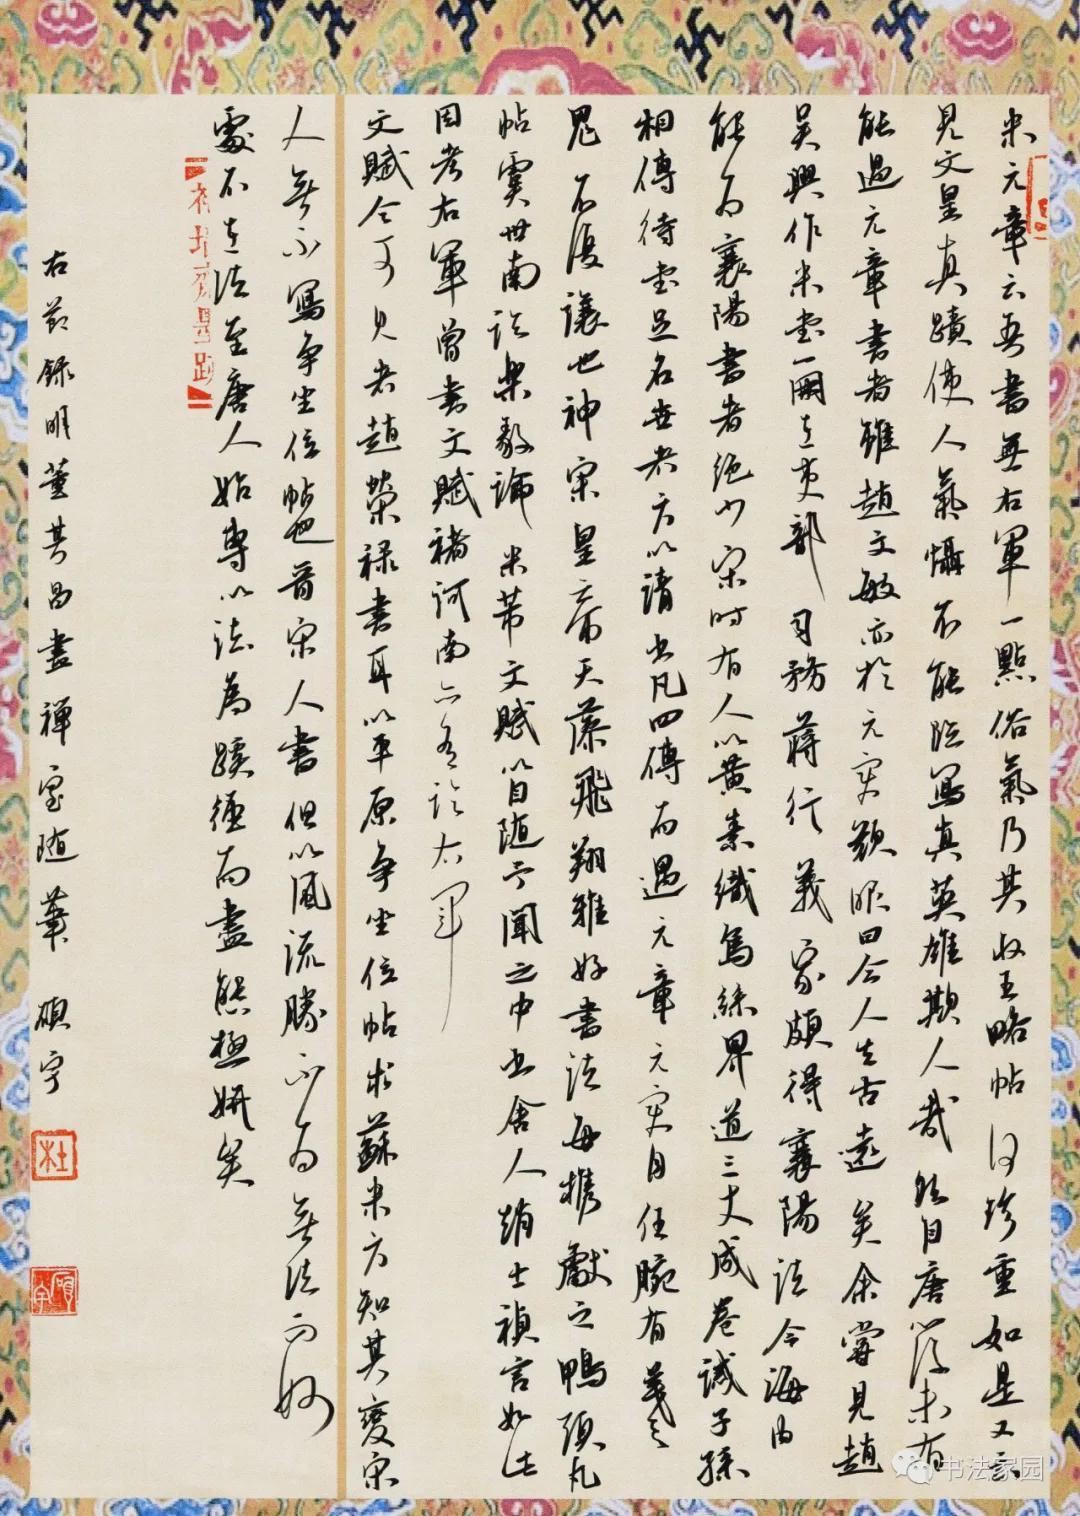 米元章云吾書無右軍一點俗氣乃其收王略帖何珍重如是又云
見文皇真蹟使人氣懾不能臨寫真英雄欺人哉然自唐以後未有
能過元章書者雖趙文敏亦於元章歎服曰今人去古遠矣余嘗見趙
吳興作米書一冊在吏部司務蔣行義家頗得襄陽法今海內
能為襄陽書者絕少宋時有人以黃素織烏絲界道三丈成卷誡子孫
相傳待書足名世者方以請書凡四傳而遇元章元章自任腕有羲之
鬼不復讓也神宗皇帝天藻飛翔雅好書法每攜獻之鴨頭丸
帖虞世南臨樂毅論米芾文賦以自隨予聞之中書舍人趙士禎言如此
因考右軍曾書文賦褚河南亦有臨右軍
文賦今可見者趙榮祿書耳以平原爭坐位帖求蘇米方知其變宋
人無不寫爭坐位帖也晉宋人書但以風流勝不為無法而妙
處不在法至唐人始專以法為蹊徑而盡態極妍矣
右節錄明董其昌畫禪室隨筆 碩宇
杜
书法家园